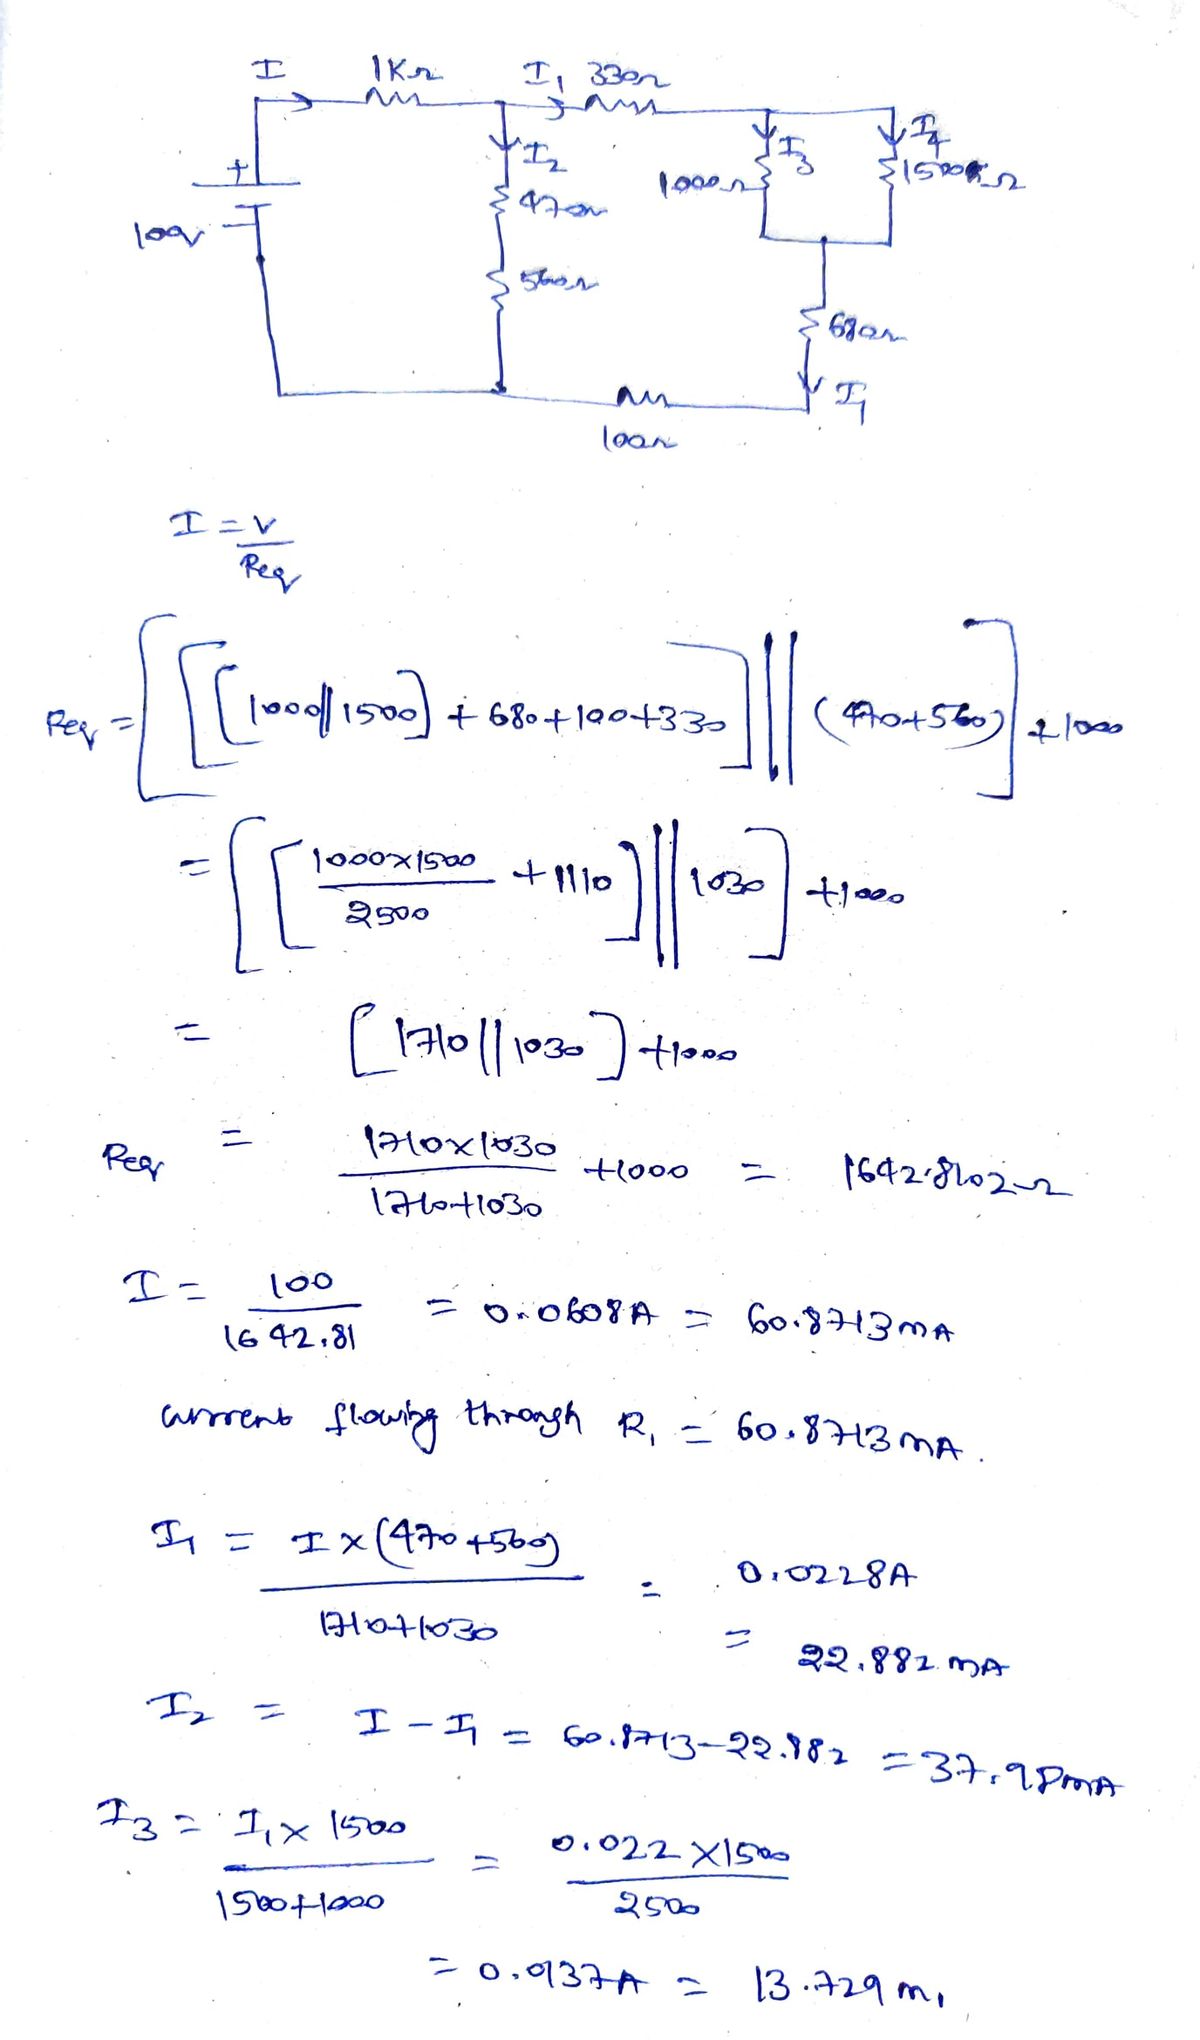 I 1KΩ I1 330Ω
+ I2 I3 I4
1000Ω 1500Ω
470Ω
100V
560Ω
680Ω
I1
100Ω
I = V / Req
Req = [[[1000||1500] + 680+100+330] || (470+560)] + 1000
= [[1000×1500 / 2500 + 1110] || 1030] + 1000
= [1710||1030] + 1000
Req = 1710×1030 / 1710+1030 + 1000 = 1642.8102Ω
I = 100 / 1642.81 = 0.0608A = 60.8713mA
current flowing through R1 = 60.8713mA.
I1 = I×(470+560) / 1710+1030 = 0.0228A
= 22.882mA
I2 = I - I1 = 60.8713-22.882 = 37.98mA
I3 = I1×1500 / 1500+1000 = 0.022×1500 / 2500
= 0.0137A = 13.729m